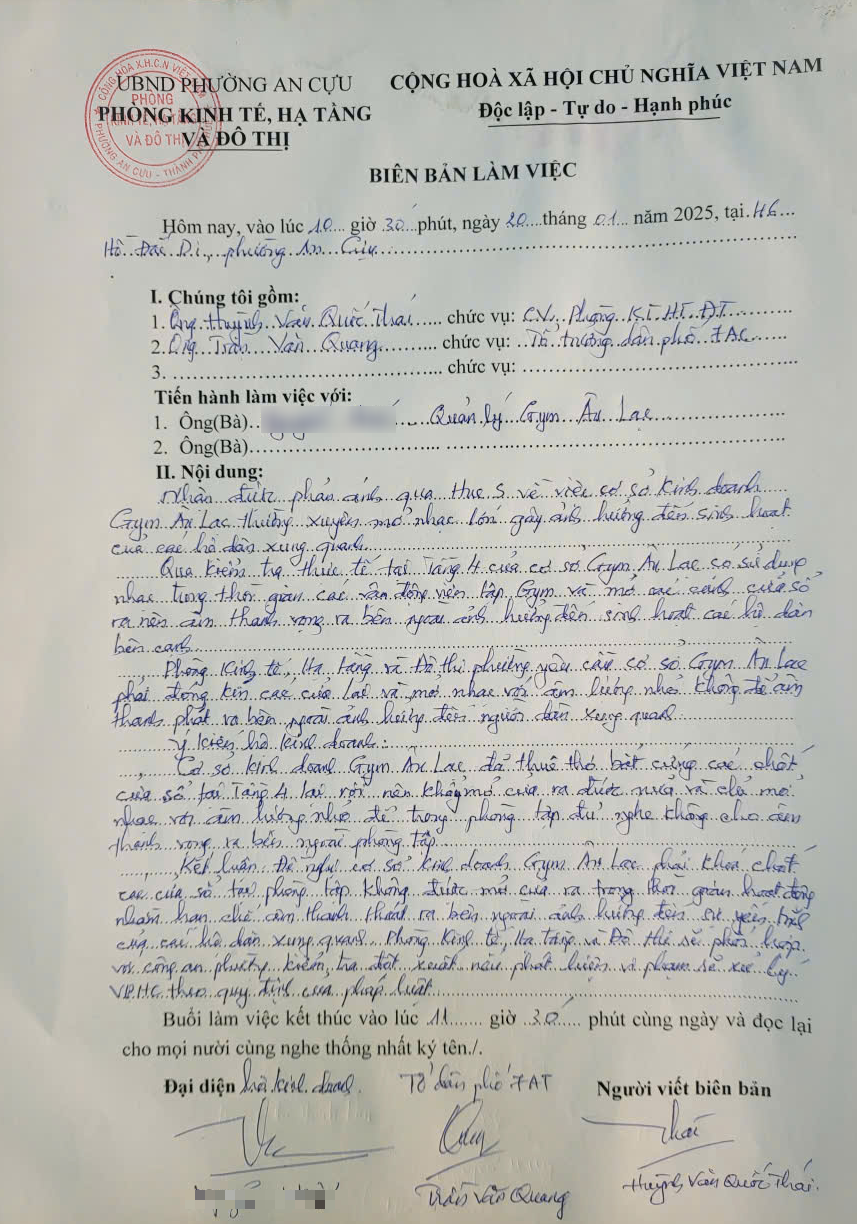 UBND PHƯỜNG AN CỰU
PHÒNG KINH TẾ, HẠ TẦNG
VÀ ĐÔ THỊ
CỘNG HOÀ XÃ HỘI CHỦ NGHĨA VIỆT NAM
Độc lập - Tự do - Hạnh phúc
CỘNG HÒA X.H.C.N VIỆT NAM
PHÒNG
KINH TẾ, HẠ TẦNG
VÀ ĐÔ THỊ
PHƯỜNG AN CỰU - THÀNH PHỐ
BIÊN BẢN LÀM VIỆC
Hôm nay, vào lúc 10 giờ 30 phút, ngày 20 tháng 01 năm 2025, tại
Hồ Đắc Di, phường An Cựu
I. Chúng tôi gồm:
1. Ông Huỳnh Văn Quốc Thái chức vụ: CV. Phòng KT, HT, ĐT
2. Ông Trần Văn Quang chức vụ: Tổ trưởng dân phố
3. chức vụ:
Tiến hành làm việc với:
1. Ông(Bà) Quản lý Gym Ân Lạc
2. Ông(Bà)
II. Nội dung:
Nhận được phản ánh qua Hue S về việc cơ sở kinh doanh
Gym Ân Lạc thường xuyên mở nhạc lớn gây ảnh hưởng đến sinh hoạt
của các hộ dân xung quanh
Qua kiểm tra thực tế tại Tầng 4 của cơ sở Gym Ân Lạc có sử dụng
nhạc trong thời gian các vận động viên tập Gym và mở các cánh cửa sổ
ra nên âm thanh vọng ra bên ngoài ảnh hưởng đến sinh hoạt các hộ dân
bên cạnh
Phòng Kinh tế, Hạ tầng và Đô thị phường yêu cầu cơ sở Gym Ân Lạc
phải đóng kín các cửa lại và mở nhạc với âm lượng nhỏ không để âm
thanh phát ra bên ngoài ảnh hưởng đến người dân xung quanh
Ý kiến hộ kinh doanh:
Cơ sở kinh doanh Gym Ân Lạc đã thuê thợ bắt cứng các chốt
cửa sổ tại Tầng 4 lại rồi nên không mở cửa ra được nữa và chỉ mở
nhạc với âm lượng nhỏ để trong phòng tập đủ nghe không cho âm
thanh vọng ra bên ngoài phòng tập
Kết luận: Đề nghị cơ sở kinh doanh Gym Ân Lạc phải khoá chốt
các cửa sổ tại phòng tập không được mở cửa ra trong thời gian hoạt động
nhằm hạn chế âm thanh thoát ra bên ngoài ảnh hưởng đến sự yên tĩnh
của các hộ dân xung quanh. Phòng Kinh tế, Hạ tầng và Đô thị sẽ phối hợp
với công an phường kiểm tra đột xuất nếu phát hiện vi phạm sẽ xử lý
VPHC theo quy định của pháp luật
Buổi làm việc kết thúc vào lúc 11 giờ 30 phút cùng ngày và đọc lại
cho mọi nười cùng nghe thống nhất ký tên./.
Đại diện hộ kinh doanh Tổ dân phố 7AT Người viết biên bản
Trần Văn Quang Huỳnh Văn Quốc Thái